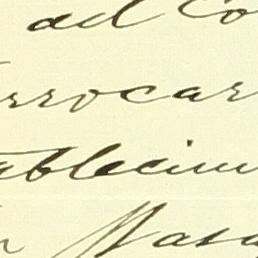 ad Co
rrocar
ablecim
n Nasa